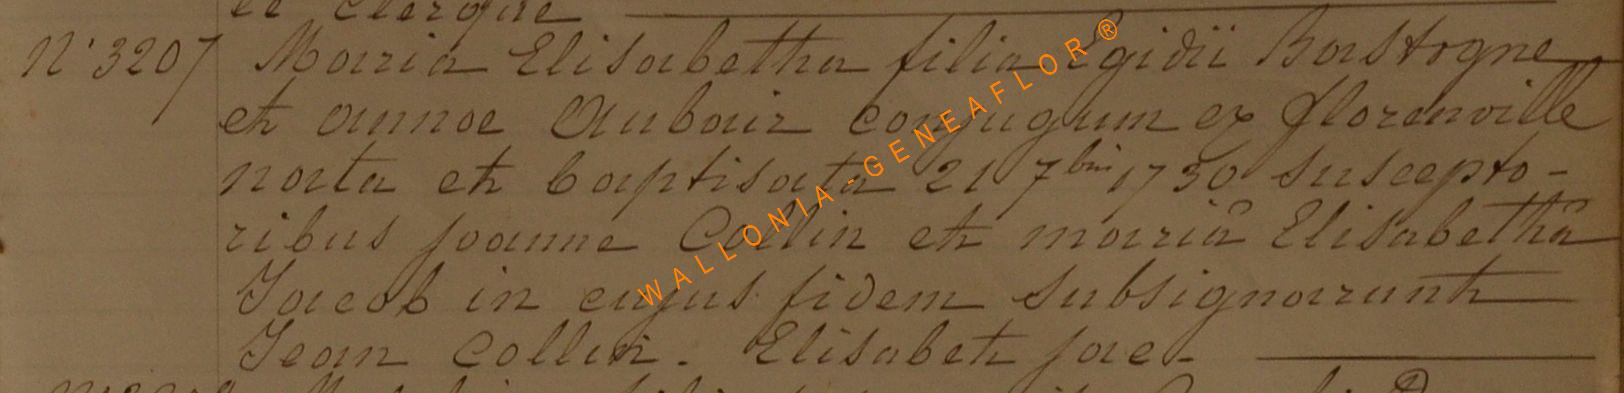 le clergue
N° 3207 Maria Elisabetha filia Egidii Bastogne
et annae Aubair conjugum ex florenville
nata et baptisata 21 7bris 1730 suscepto-
ribus joanne Collin et mariâ Elisabethâ
Jacob in cujus fidem subsignarunt
Jean Collin. Elisabeth jac-
WALLONIA-GENEAFLOR®